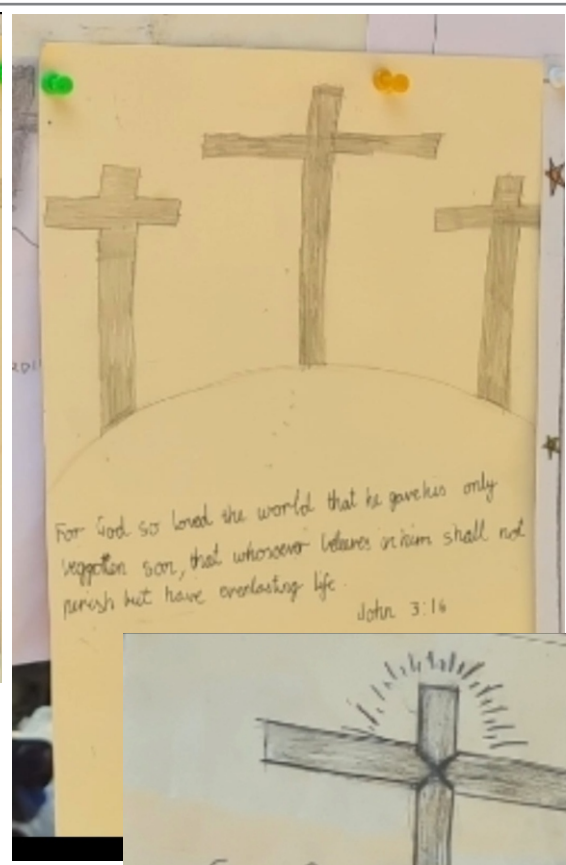 For God so loved the world that he gave his only
beggotten son, that whosoever believes in him shall not
perish but have everlasting life.
John 3:16